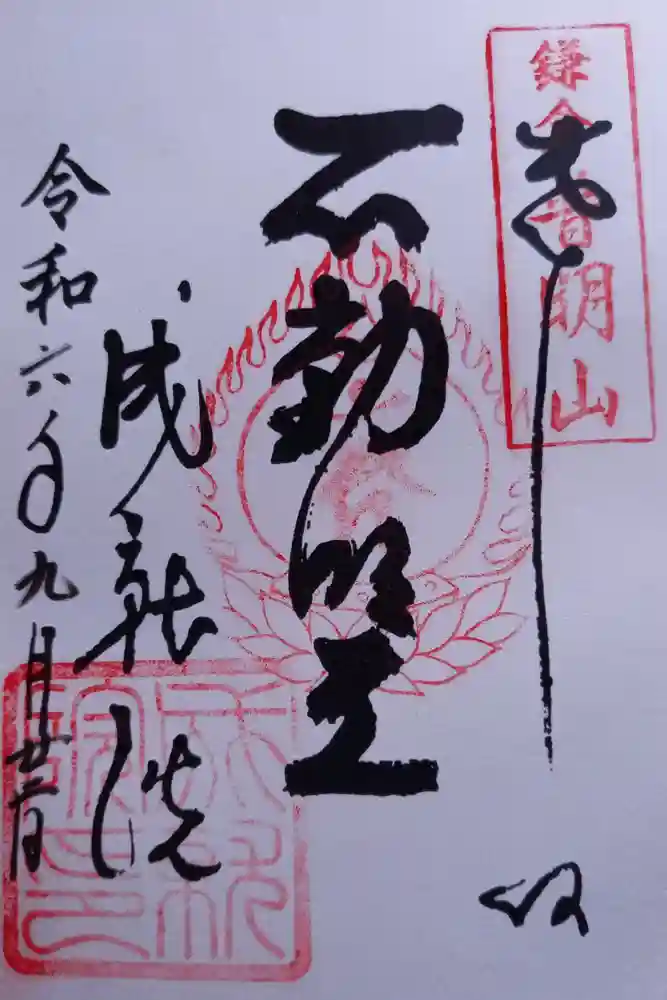 鎌倉普明山
奉拝
不動明王
成就院
成就院印
令和六年九月廿二日